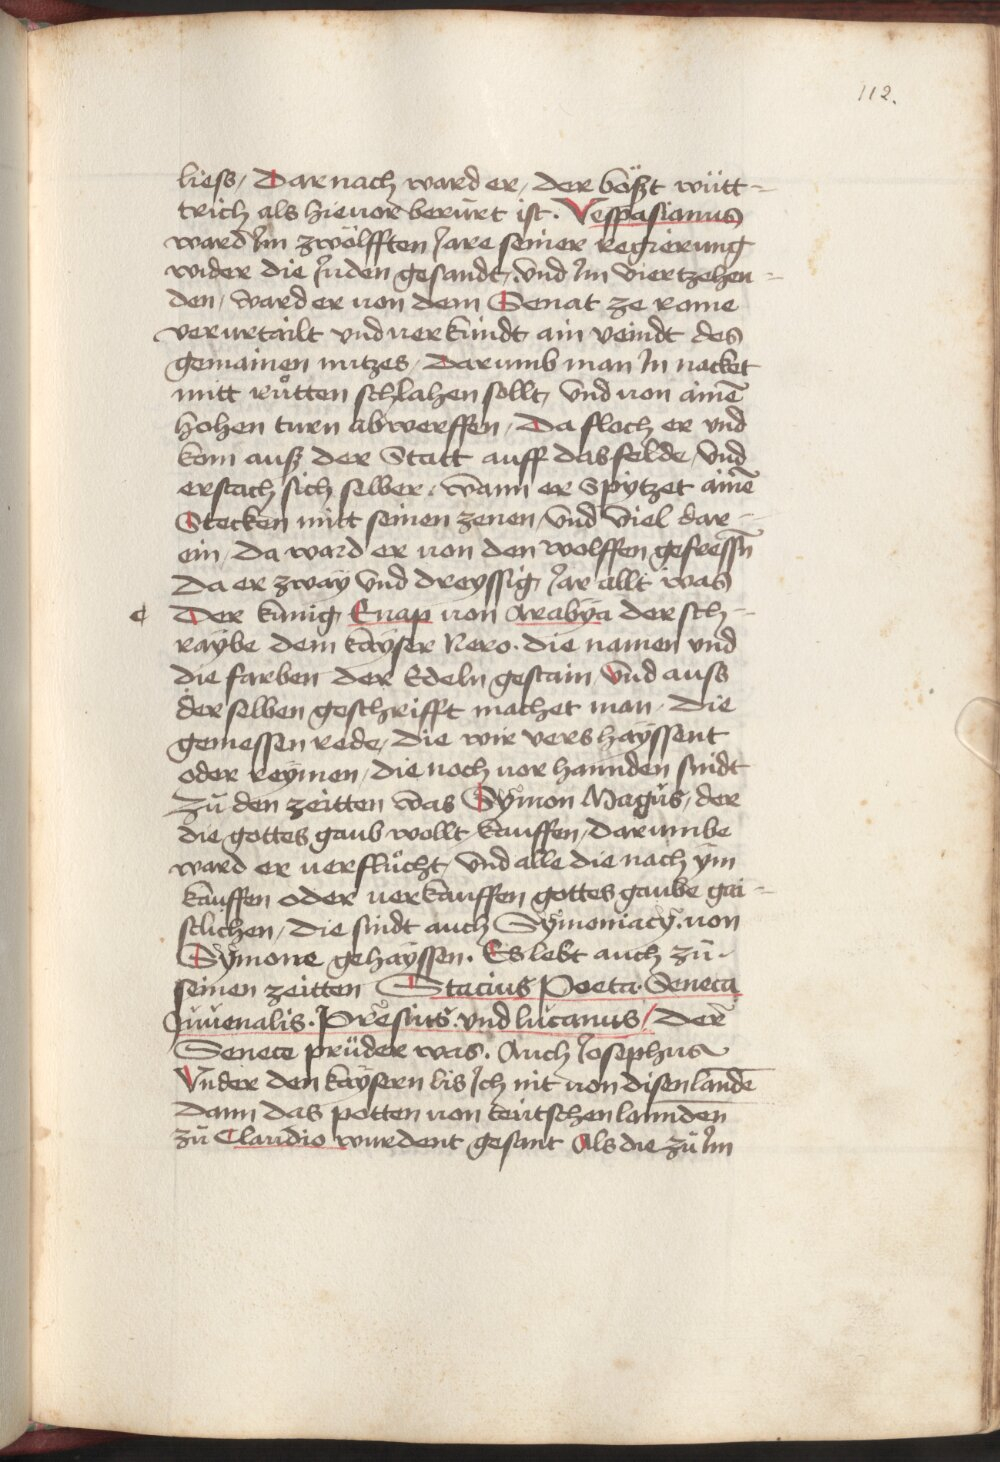 112.
liess / Darnach ward er / der bößt wütt=
trich als hieuor berürt ist. Vespasianus
ward Im zwölfften Jare seiner regierung
wider die Juden gesandt / vnd Im viertzehen=
den / ward er von dem Senat ze rome
verurtailt vnd uerkündt ain veindt des
gemainen nutzes / Darumb man In nacket
mitt růtten schlahen sollt, vnd von aimē
hohen turn abwerffen / Da floch er vnd
kom auß der Statt auff das felde / vnd
erstach sich selber. wann er spytzet aimē
Stecken mitt seinen zenen / vnd viel dar=
ein / da ward er von den wolffen gefressn̄
Da er zway vnd dreyssig Jar allt was
¢ Der künig Euap von Arabÿa der sch=
raÿbe dem kayser Nero. die namen vnd
die farben der Edeln gestain, vnd auss
der selben geschrifft machet man / Die
gemessen rede, die wir vers haÿssent
oder reymen / die noch vor hannden sindt
Zů den zeitten was Sÿmon Magus, der
die gottes gaub wollt kauffen / darumbe
ward er uerflůcht / vnd alle die nach ÿm
kauffen oder uerkauffen gottes gaube gai=
stlichen / die sindt auch Sÿmoniacÿ. von
Sÿmone gehaÿssen. Es lebt auch zů
seinen zeitten Stacius Poeta. Seneca
Juuenalis. Presius. vnd lucanus / Der
Senece prüder was. Auch Josephus
Vnder den kaÿsern lis Ich nit von disen lande
dann das potten von teütschen lannden
zů Claudio wurdent gesant Als die zů Im